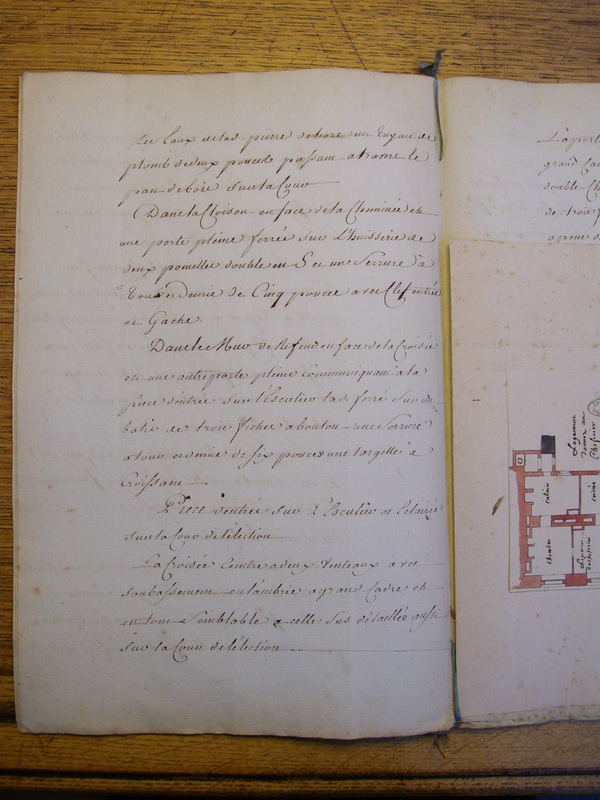 Les Eaux de lad. pierre dehors un Tuyau de
plomb de deux pouces passant a travers le
pan de bois sur la Cour
Dans la Cloison en face de la Cheminée est
une porte pleine ferrée sur L'huisserie de
deux pomelles double en S et une Serrure à
Tour et Demie de Cinq pouces avec Clef entrée
et Gache.
Dans le Mur de Refend en face de la Croisée
est une autre porte pleine Communiquant a la
piece d'entrée sur l'Escalier lad. ferré sur
batie de trois fiches a bouton une Serrure
a tour et demie de six pouces une targette à
Croissant
Piece d'entrée sur l'Escalier et Eclairée
sur la Cour de l'élection
La Croisée Ceintre a deux Venteaux avec
Soubassement en lambris a grand Cadre est
en tout Semblable a celle sus détaillée aussi
sur la Cour de l'élection
La porte
grand Ca
double Ch
de trois f
a pene d
Logement
Cabinet
Cuisine
Chambre